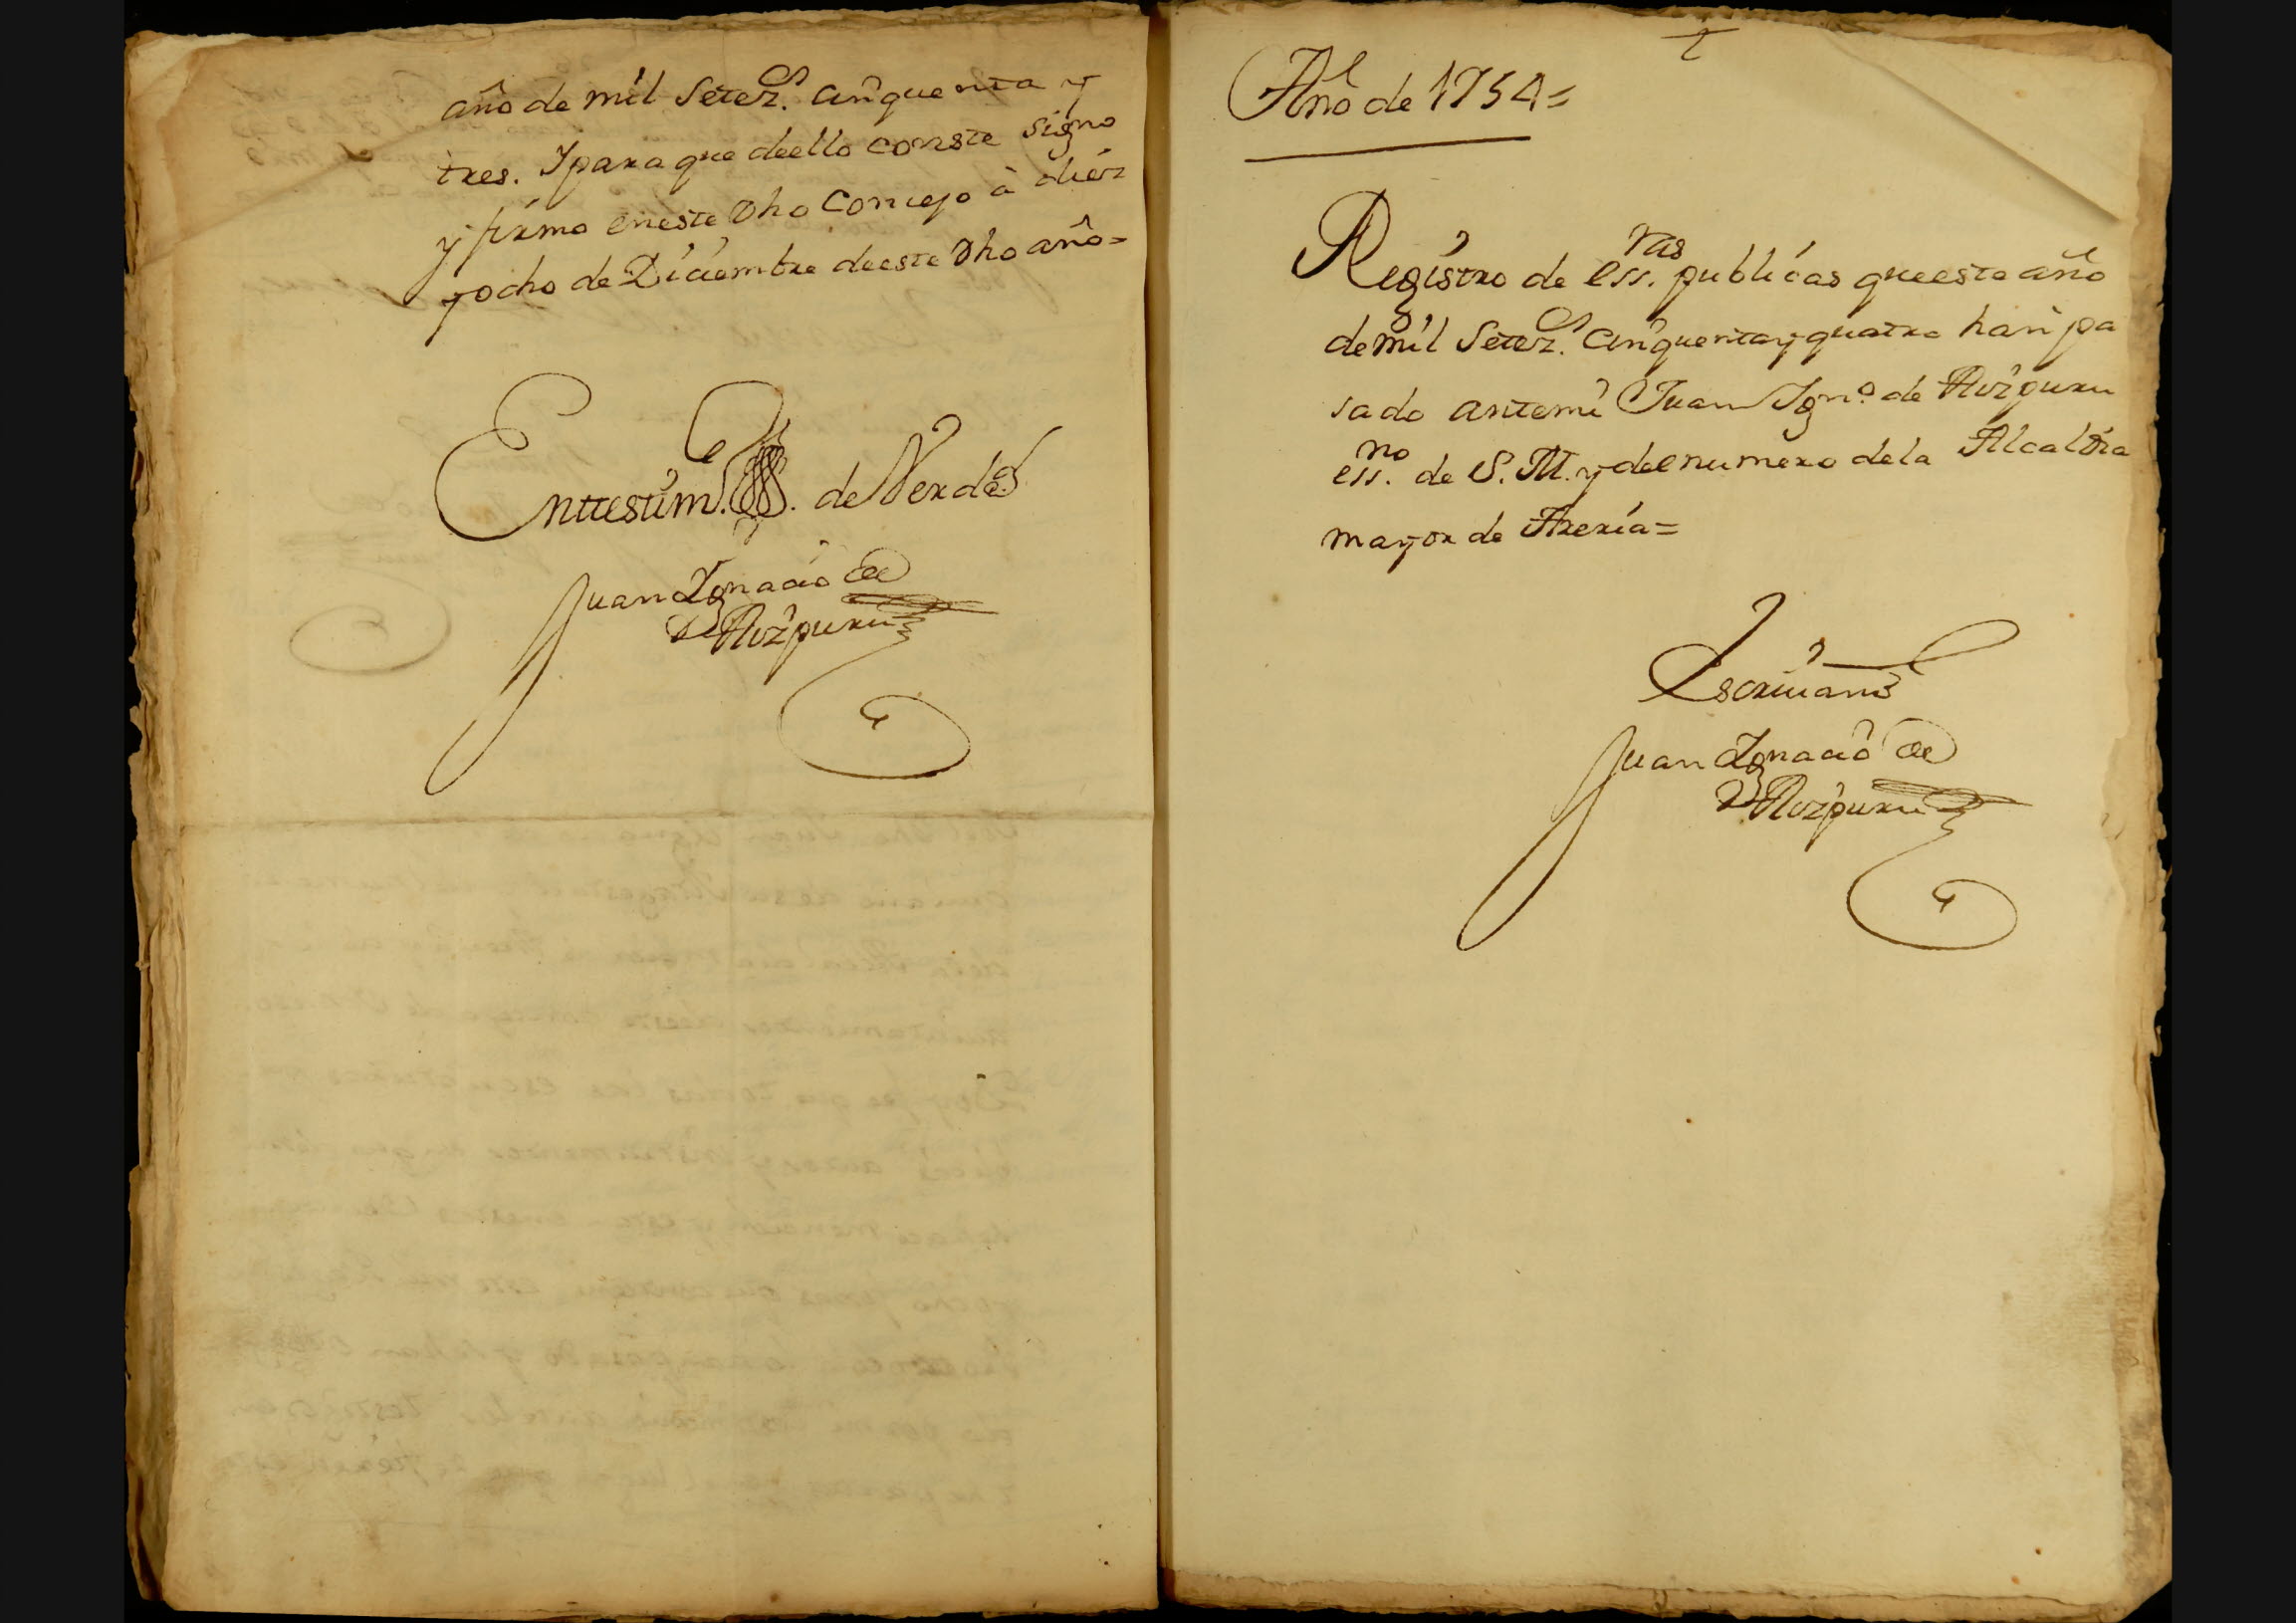 año de mil Setez.s cinquenta y
tres. Y para que deello conste signo
y firmo en este dho Concejo à diéz
y ocho de Diciembre de este dho año=
En ttestim.o de Verdad
Juan Ignacio de
Aizpuru
Año de 1754=
Registro de ess.ras publicas que este año
de mil Setez.s cinquenta y quatro han pa
sado antemi Juan Ign.o de Aizpuru
ess.no de S. M. y del numero de la Alcaldia
mayor de Areria=
Escriuano
Juan Ignacio de
Aizpuru